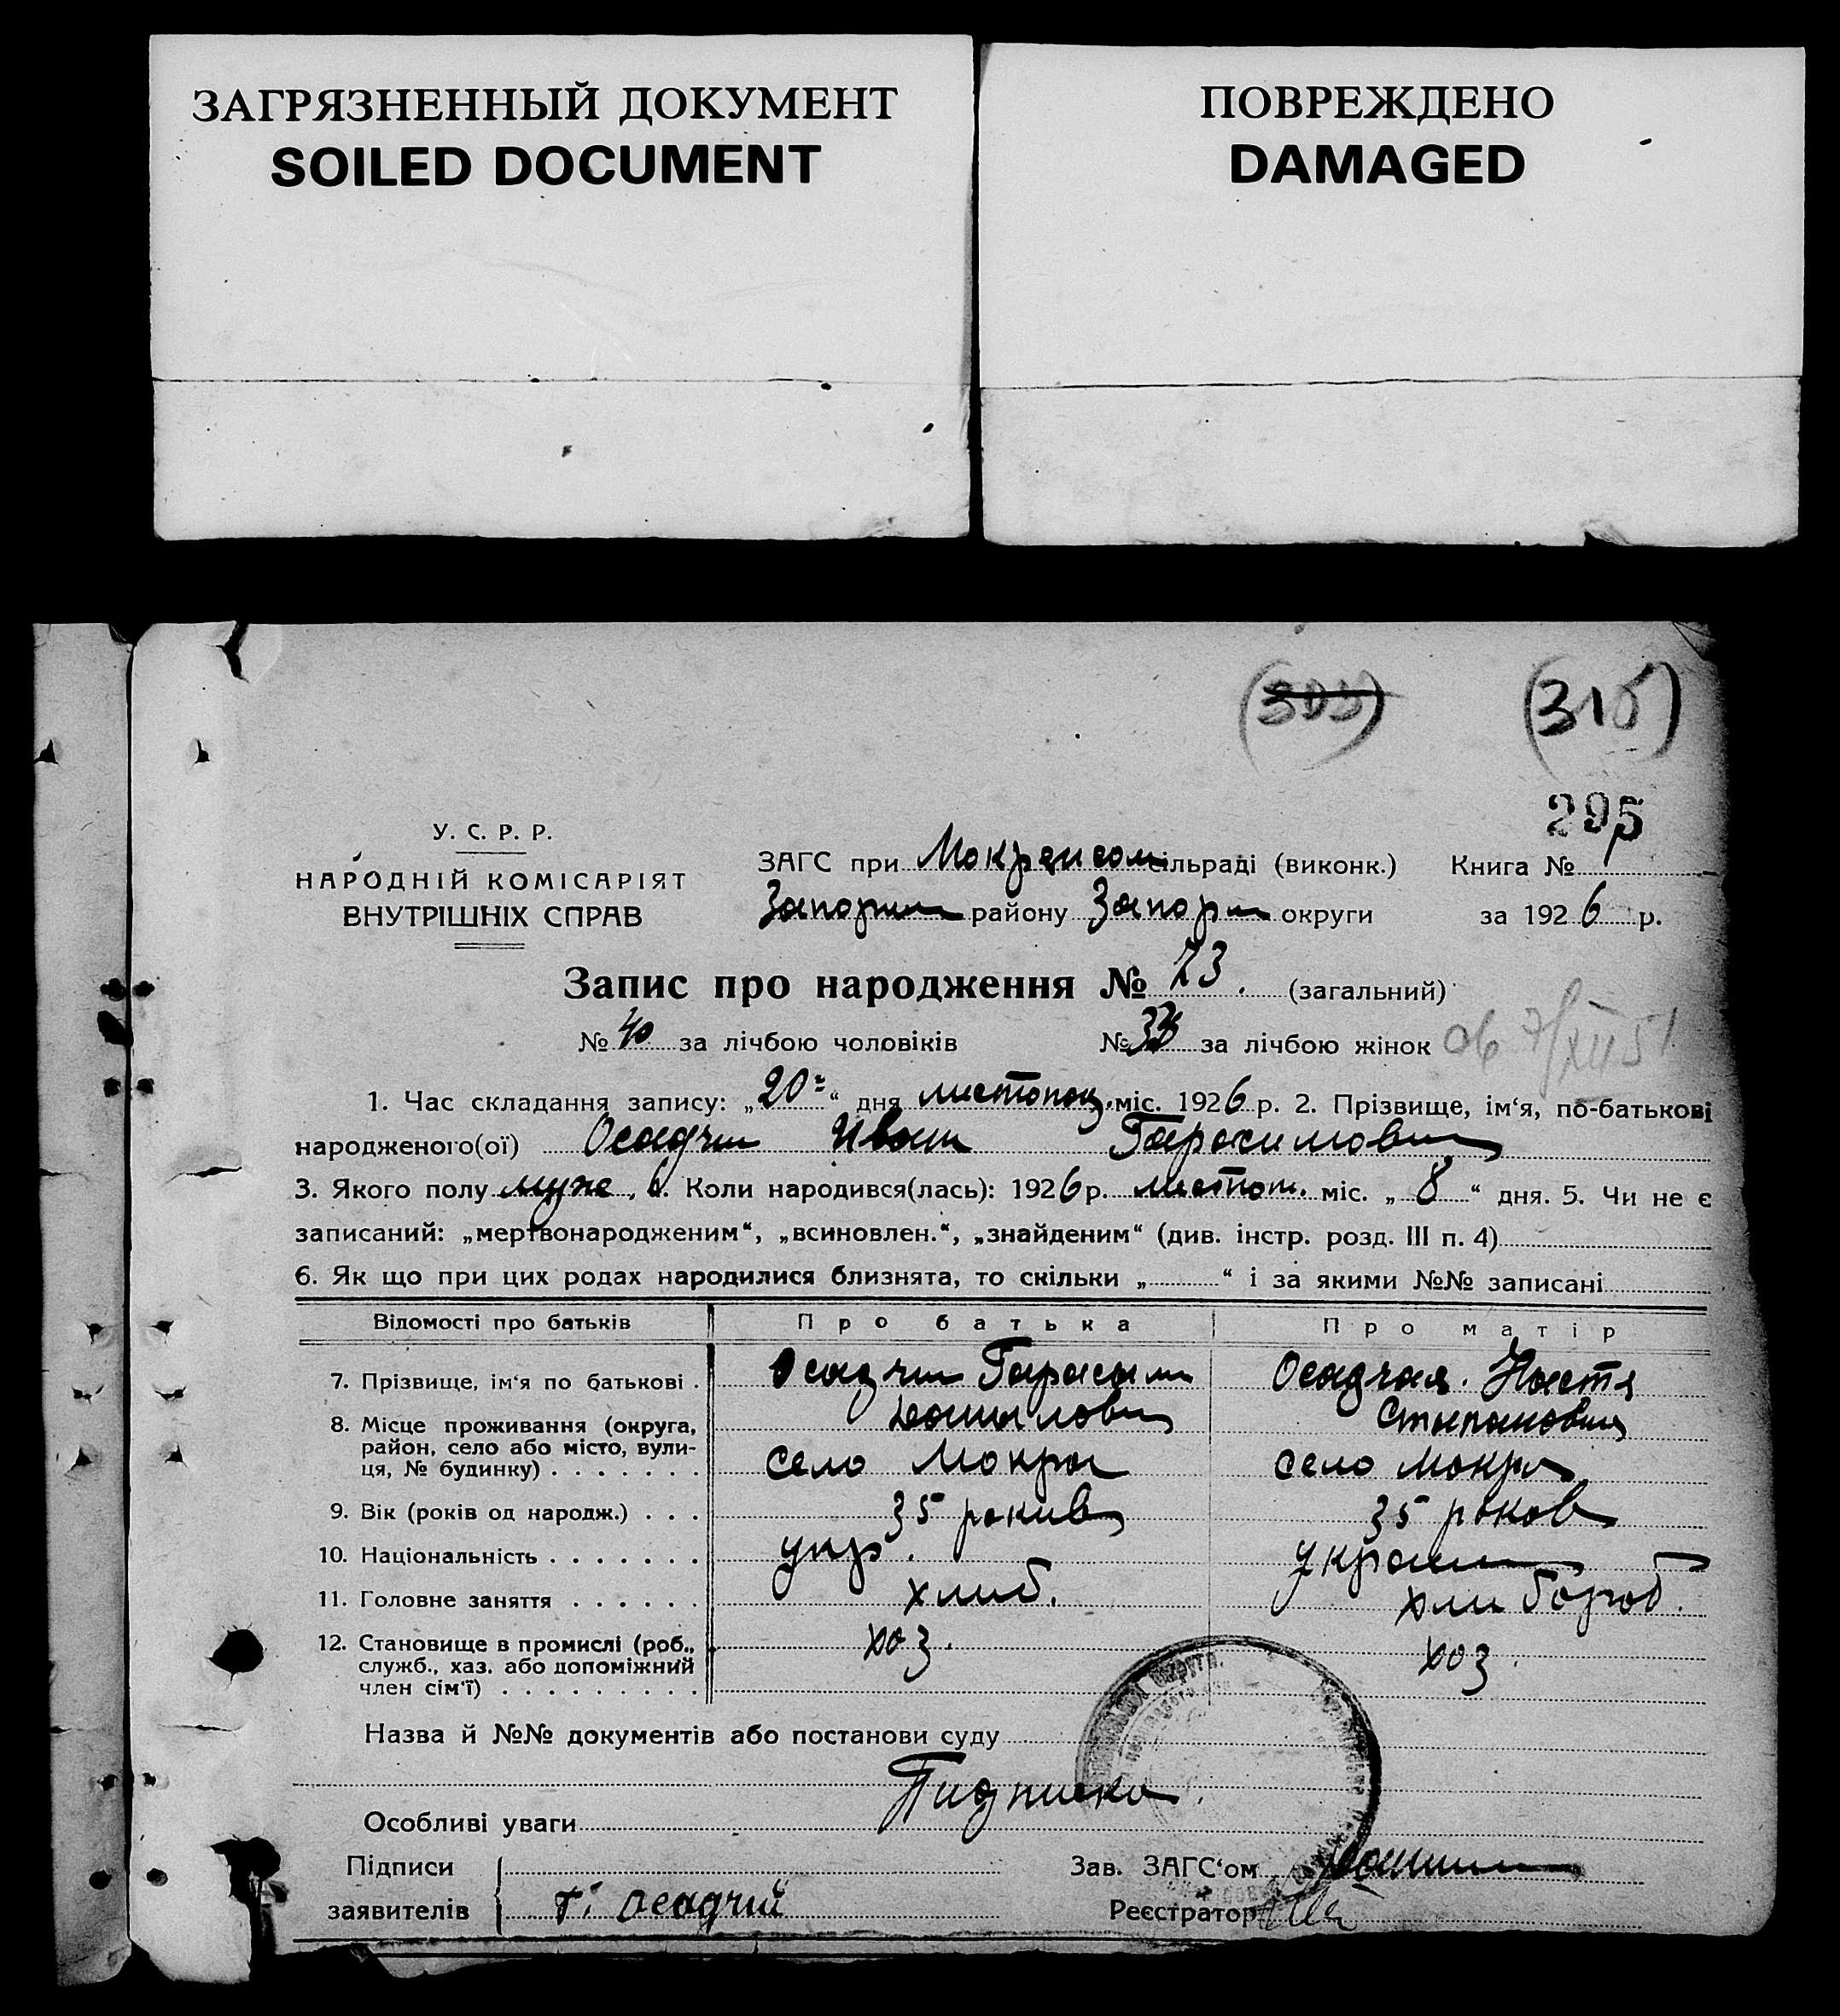 ЗАГРЯЗНЕННЫЙ ДОКУМЕНТ
SOILED DOCUMENT
ПОВРЕЖДЕНО
DAMAGED
(315)
295
У. С. Р. Р.
НАРОДНІЙ КОМІСАРІЯТ
ВНУТРІШНІХ СПРАВ
ЗАГС при Мокрянском сільраді (виконк.) Книга № 1
Запориж району Запориж округи за 1926 р.
Запис про народження № 73. (загальний)
№ 40 за лічбою чоловіків № 33 за лічбою жінок
1. Час складання запису: „20“ дня листопад. міс. 1926 р. 2. Прізвище, ім‘я, по-батькові
народженого(ої) Осадчии Иван Гарасимович
3. Якого полу муже, 4. Коли народився(лась): 1926 р. листоп. міс. „8“ дня. 5. Чи не є
записаний: „мертвонародженим“, „всиновлен.“, „знайденим“ (див. інстр. розд. III п. 4)
6. Як що при цих родах народилися близнята, то скільки „ “ і за якими №№ записані
Відомості про батьків Про батька Про матір
7. Прізвище, ім‘я по батькові . Осадчии Гарасым Осадчая. Настя
Данилович Стипановна
8. Місце проживання (округа, район, село або місто, вули-ця, № будинку) . . . . . . . село Мокра село Мокра
9. Вік (років од народж.) . . . 35 рокив 35 роков
10. Національність . . . . . . . укр. украин
11. Головне заняття . . . . . . хлиб. хлибороб.
12. Становище в промислі (роб., служб., хаз. або допоміжний член сім‘ї) . . . . . . . . . хоз. хоз.
Назва й №№ документів або постанови суду
Пидписка
Особливі уваги
Підписи
заявителів Г. Осадчий
Зав. ЗАГС‘ом
Реєстратор